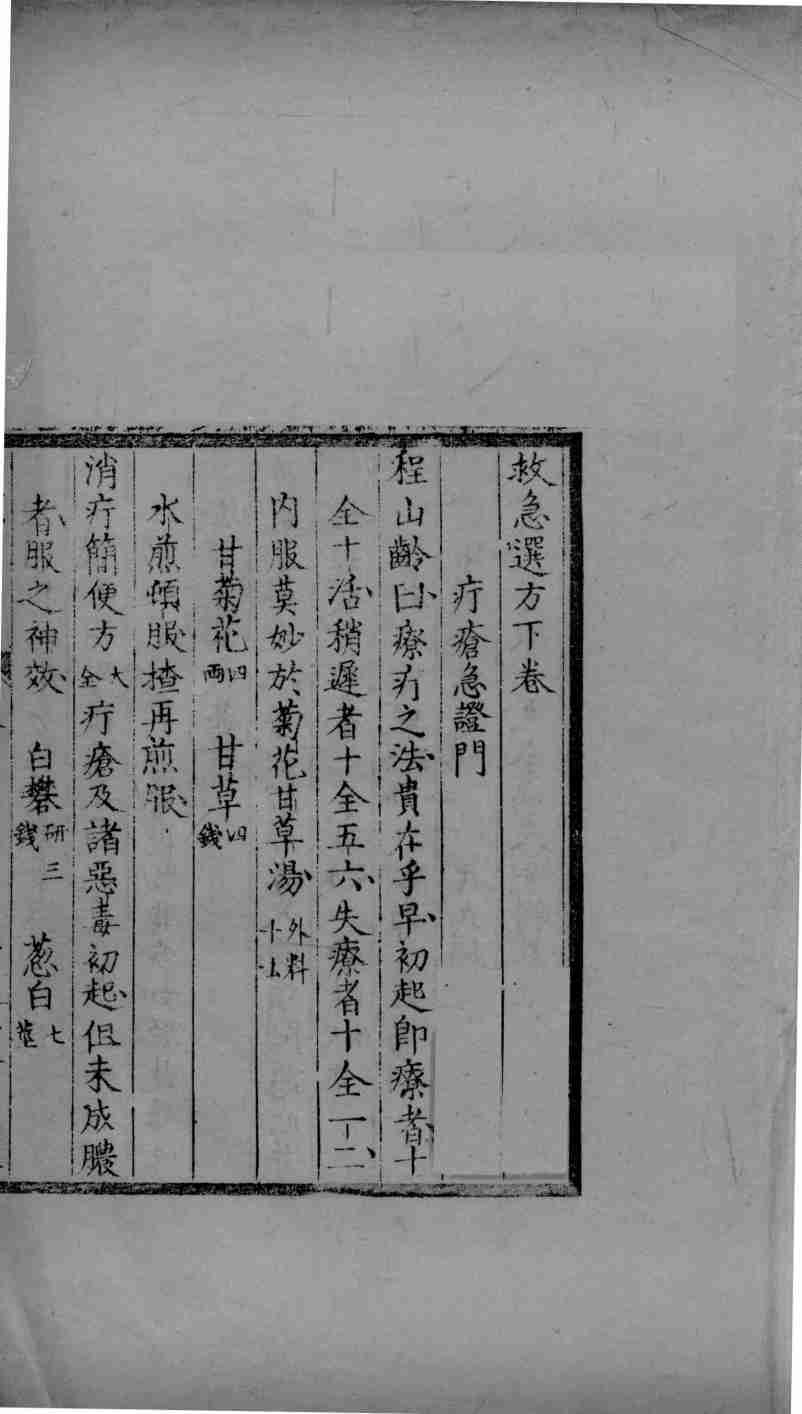 救急選方下卷
疔瘡急證門
程山齡曰療疔之法貴在乎早初起即療者十
全十活稍遲者十全五六失療者十全一二
内服莫妙於菊花甘草湯外科十法
甘菊花四兩 甘草四錢
水煎頓服渣再煎服
消疔簡便方大全疔瘡及諸惡毒初起但未成膿
者服之神效 白礬研三錢 葱白七莖